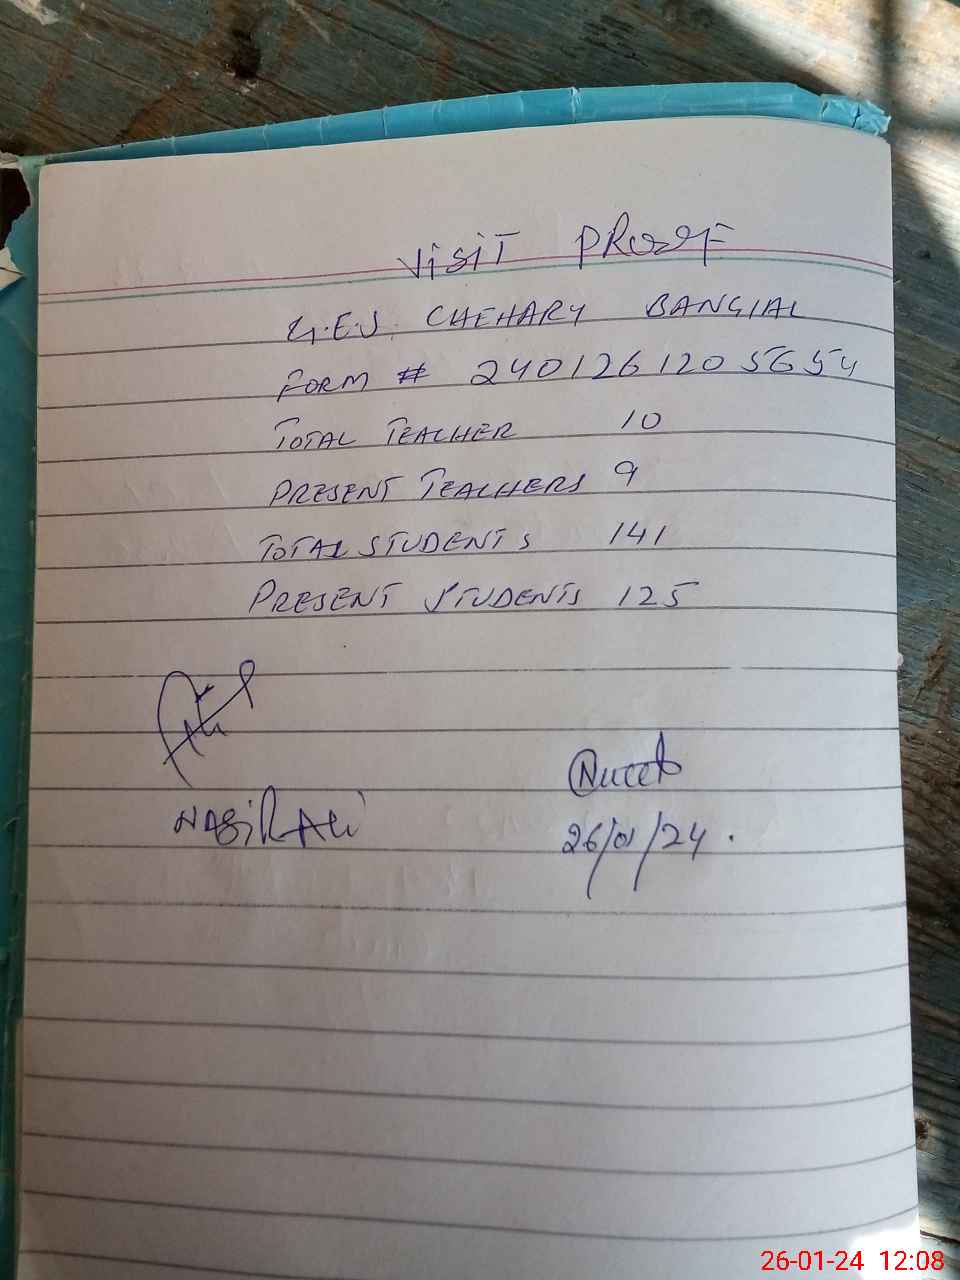 VISIT PROOF
G.E.S. CHEHARY BANGIAL
FORM # 240126120 5654
TOTAL TEACHER 10
PRESENT TEACHERS 9
TOTAL STUDENTS 141
PRESENT STUDENTS 125
NASIR ALI
26/01/24.
26-01-24 12:08